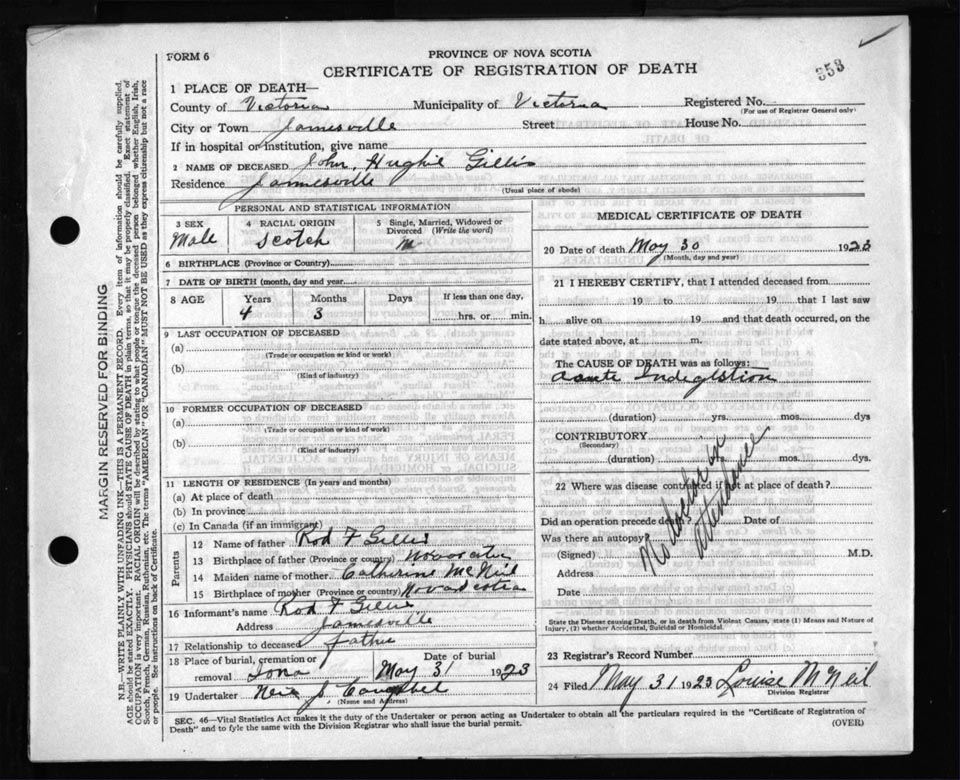 FORM 6
PROVINCE OF NOVA SCOTIA
CERTIFICATE OF REGISTRATION OF DEATH
353
1 PLACE OF DEATH—
County of Victoria Municipality of Victoria Registered No.
(For use of Registrar General only)
City or Town Jamesville Street House No.
If in hospital or institution, give name
2 NAME OF DECEASED John Hughie Gillis
Residence Jamesville
(Usual place of abode)
PERSONAL AND STATISTICAL INFORMATION
3 SEX
Male
4 RACIAL ORIGIN
Scotch
5 Single, Married, Widowed or Divorced (Write the word)
6 BIRTHPLACE (Province or Country)
7 DATE OF BIRTH (month, day and year)
8 AGE Years Months Days If less than one day,
4 3 hrs. or min.
9 LAST OCCUPATION OF DECEASED
(a)
(Trade or occupation or kind or work)
(b)
(Kind of industry)
10 FORMER OCCUPATION OF DECEASED
(a)
(Trade or occupation or kind of work)
(b)
(Kind of industry)
11 LENGTH OF RESIDENCE (In years and months)
(a) At place of death
(b) In province
(c) In Canada (if an immigrant)
Parents
12 Name of father Rod F Gillis
13 Birthplace of father (Province or country)
14 Maiden name of mother Catherine McNeil
15 Birthplace of mother (Province or country) Nova Scotia
16 Informant's name Rod F Gillis
Address Jamesville
17 Relationship to deceased father
18 Place of burial, cremation or removal Iona
Date of burial
May 31 1923
19 Undertaker Neil J Campbell
(Name and Address)
MEDICAL CERTIFICATE OF DEATH
20 Date of death May 30 1923
(Month, day and year)
21 I HEREBY CERTIFY, that I attended deceased from
19 to 19 that I last saw
h alive on 19 and that death occurred, on the
date stated above, at m.
The CAUSE OF DEATH was as follows:
Acute Indigestion
(duration) yrs. mos. dys
CONTRIBUTORY
(Secondary)
(duration) yrs. mos. dys
22 Where was disease contracted if not at place of death?
Did an operation precede death Date of
Was there an autopsy?
(Signed) M.D.
Address
Date
No doctor in
attendance
State the Disease causing Death, or in death from Violent Causes, state (1) Means and Nature of
Injury, (2) whether Accidental, Suicidal or Homicidal.
23 Registrar's Record Number
24 Filed May 31 1923 Louise McNeil
Division Registrar
SEC. 46—Vital Statistics Act makes it the duty of the Undertaker or person acting as Undertaker to obtain all the particulars required in the "Certificate of Registration of
Death" and to fyle the same with the Division Registrar who shall issue the burial permit.
(OVER)
MARGIN RESERVED FOR BINDING
N.B.—WRITE PLAINLY WITH UNFADING INK—THIS IS A PERMANENT RECORD. Every item of information should be carefully supplied.
AGE should be stated EXACTLY. PHYSICIANS should STATE CAUSE OF DEATH in plain terms, so that it may be properly classified. Exact statement of
OCCUPATION is very important. RACIAL ORIGIN will be described by stating to what people or tongue the deceased person belonged whether English, Irish,
Scotch, French, German, Russian, Ruthenian, etc. The terms "AMERICAN" OR "CANADIAN" MUST NOT BE USED as they express citizenship but not a race
or people. See instructions on back of Certificate.